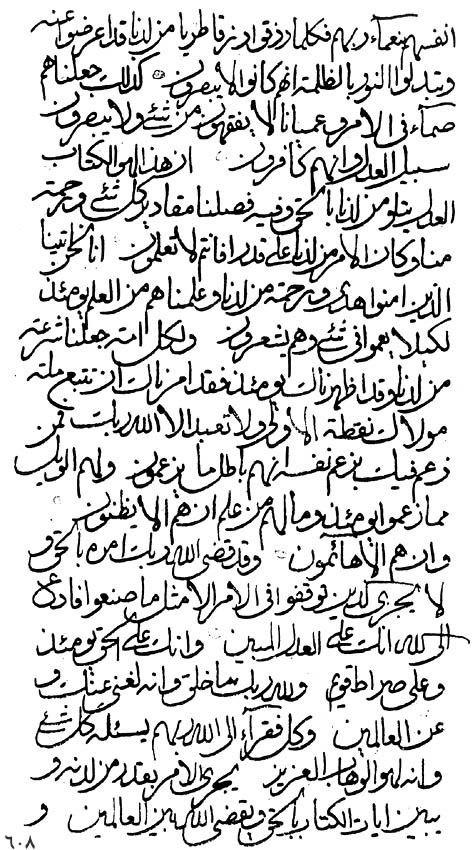 انفسهم بنعمآء ربهم فكلما رزقوا من قاطر يا من لدنا قد اعرضوا عنه
وتبدلوا النور بالظلمة انهم كانوا لا يبصرون كذلك جعلناهم
صمآء فى الامر وعميانا لا يفقهون من شئ ولا يبصرون
سبيل العدل وانهم كافرون ان هذا لهو الكتاب
العدل يتلو من لدنا بالحق وفيه فصلنا مقادير كل شئ ورحمة
منا وكان الامر من لدنا على قدر افانتم لا تعلمون انا نحن اتينا
الذين امنوا هدى ورحمة من لدنا وعلمناهم من العلم يومئذ
لكيلا يعموا فى شئ وهم يشعرون ولكل امة جعلنا شرعة
من لدنا وقد اظهرناك يومئذ فقد امرناك ان تتبع ملة
مولاك نقطة الاولى ولا تعبد الا الله ربك فمن
زعم فيك بزعم نفسه انهم باطل ما يزعمون ولهم الويل
مما زعموا يومئذ وما لهم من علم ان هم الا يظنون
وان هم الا هائمون وقد قضى الله ربك امره بالحق و
لا يجزى الذين توقفوا فى الامر الا مثل ما صنعوا فادع
الى الله انك على العدل المبين وانك على الحق يومئذ
وعلى صراط قويم ولله ربك ما خلق وانه لغنى عنك و
عن العالمين وكل فقرآء الى الله ربهم يسئله كل شئ
وانه لهو الوهاب العزيز يجرى الامر بقدر من لدنه و
يبين ايات الكتاب بالحق ويقضى الله بين العالمين و
٦٠٨